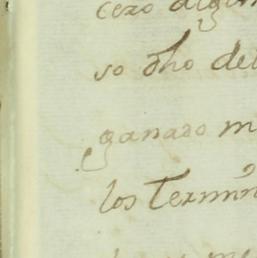 cezo algun
so dho del
ganado m
los Termin